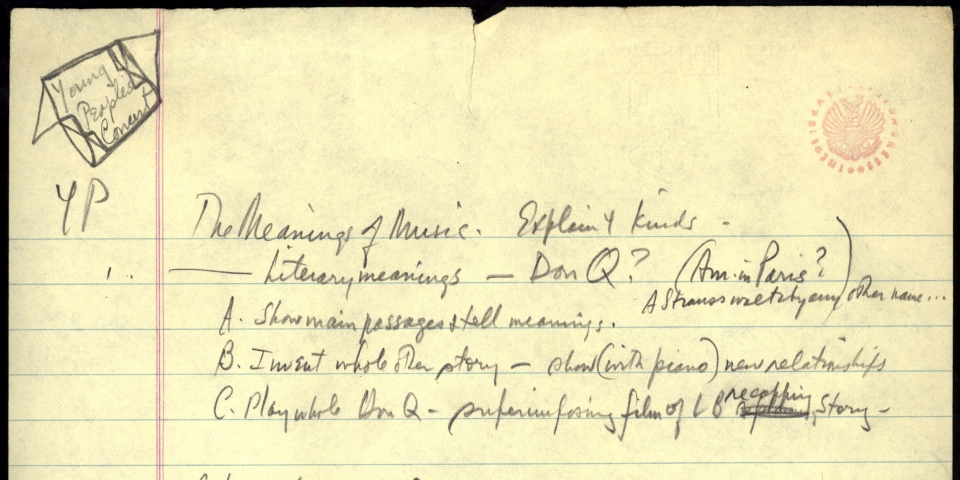 Young
People's
Concert
YP
The Meanings of Music. Explain 4 kinds -
1. Literary meanings — Don Q? (Am. in Paris?)
A Strauss waltz by any other name...
A. Show main passages & tell meanings.
B. Invent whole other story — show (with piano) new relationships
C. Play whole Don Q - superimposing film of LB recapping story -